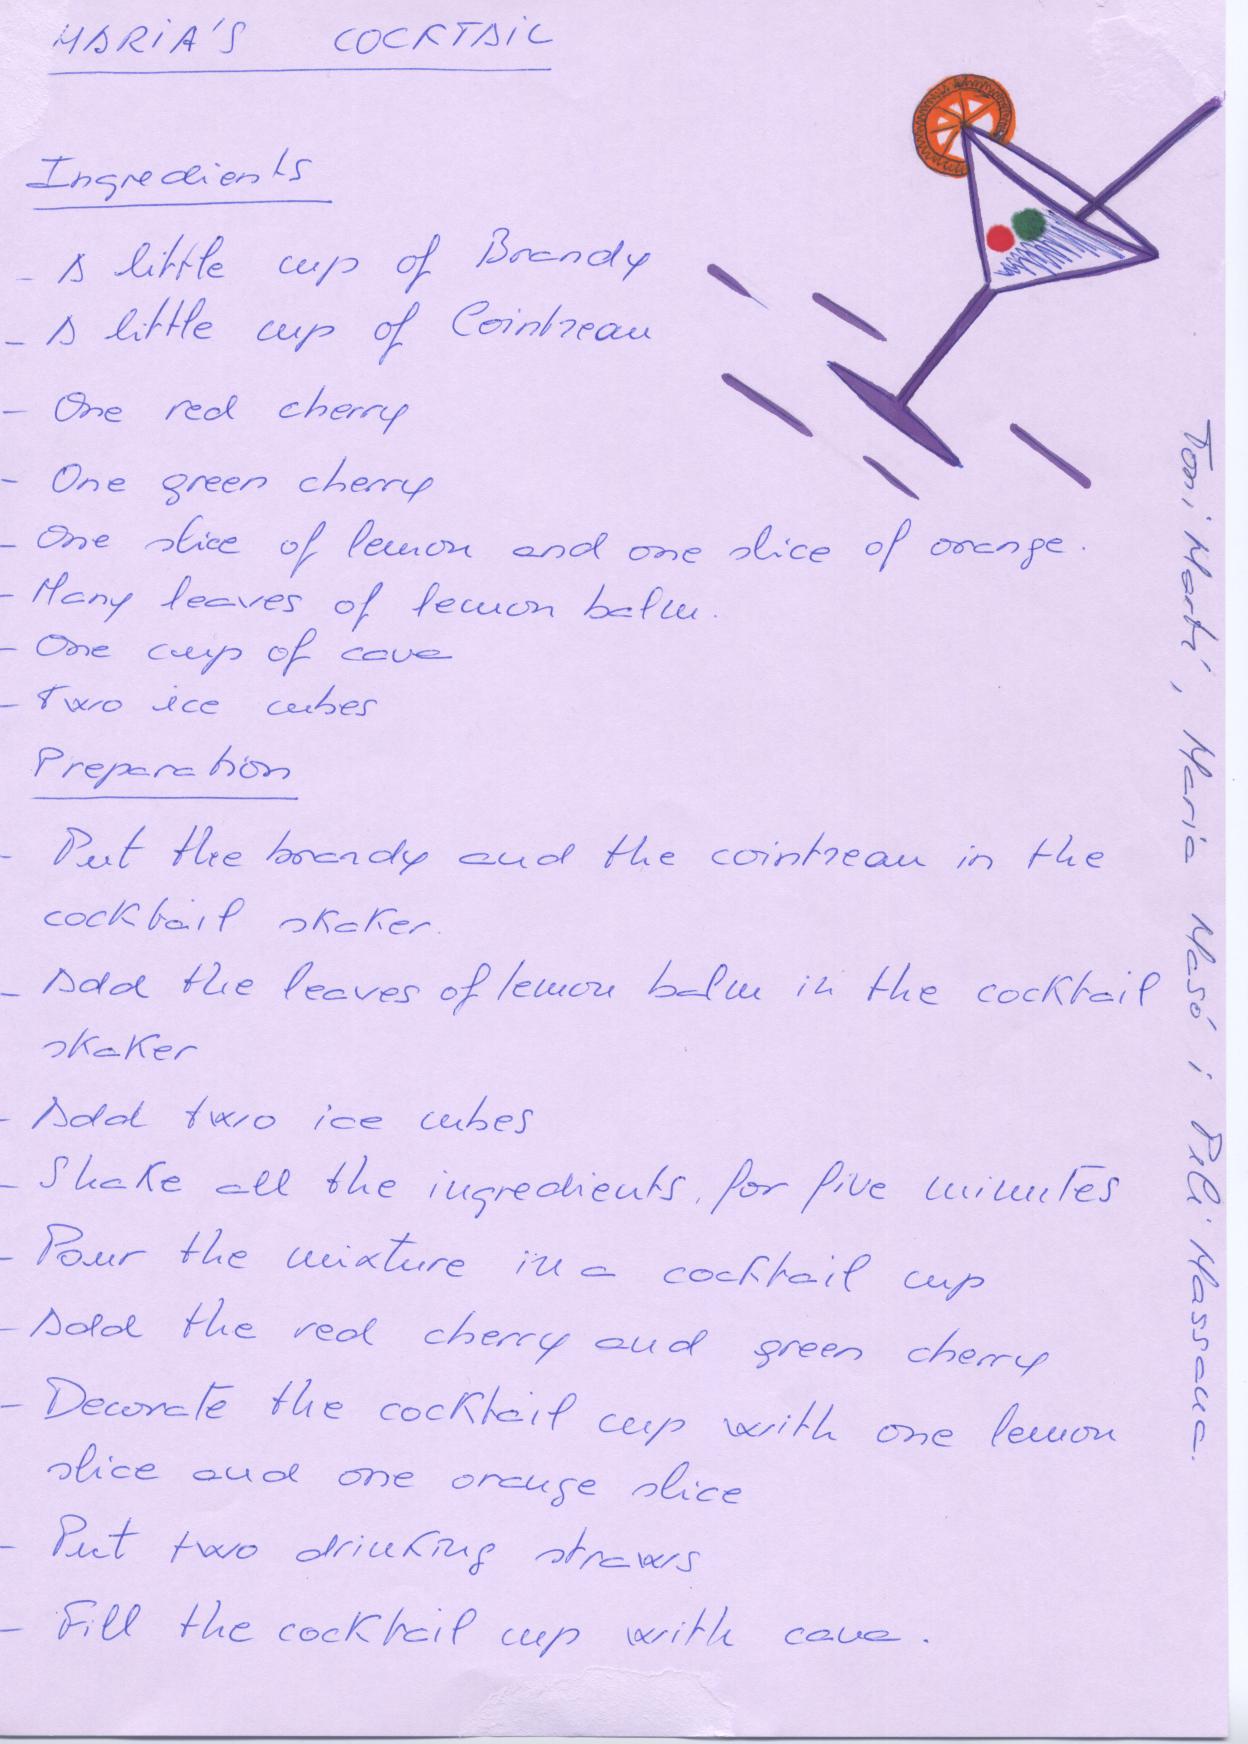 MARIA'S COCKTAIL
Ingredients
- A little cup of Brandy
- A little cup of Cointreau
- One red cherry
- One green cherry
- One slice of lemon and one slice of orange.
- Many leaves of lemon balm.
- One cup of cava
- Two ice cubes
Preparation
- Put the brandy and the cointreau in the
cocktail skaker.
- Add the leaves of lemon balm in the cocktail
skaker
- Add two ice cubes
- Shake all the ingredients, for five minutes
- Pour the mixture in a cocktail cup
- Add the red cherry and green cherry
- Decorate the cocktail cup with one lemon
slice and one orange slice
- Put two drinking straws
- Fill the cocktail cup with cava.
Toni Martí, Maria Masó i Pili Massana.